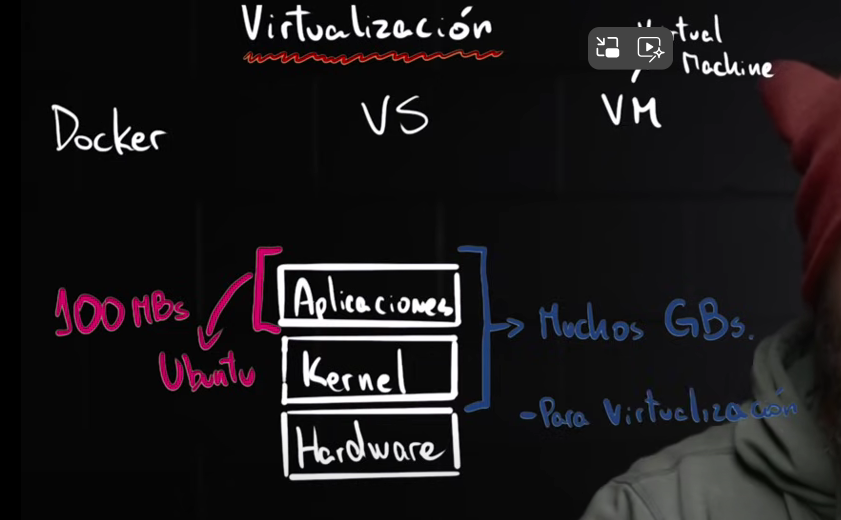 Virtualización
Virtual
Machine
Docker
VS
VM
100 MBs
Ubuntu
Aplicaciones
Kernel
Hardware
Muchos GBs.
-Para Virtualización